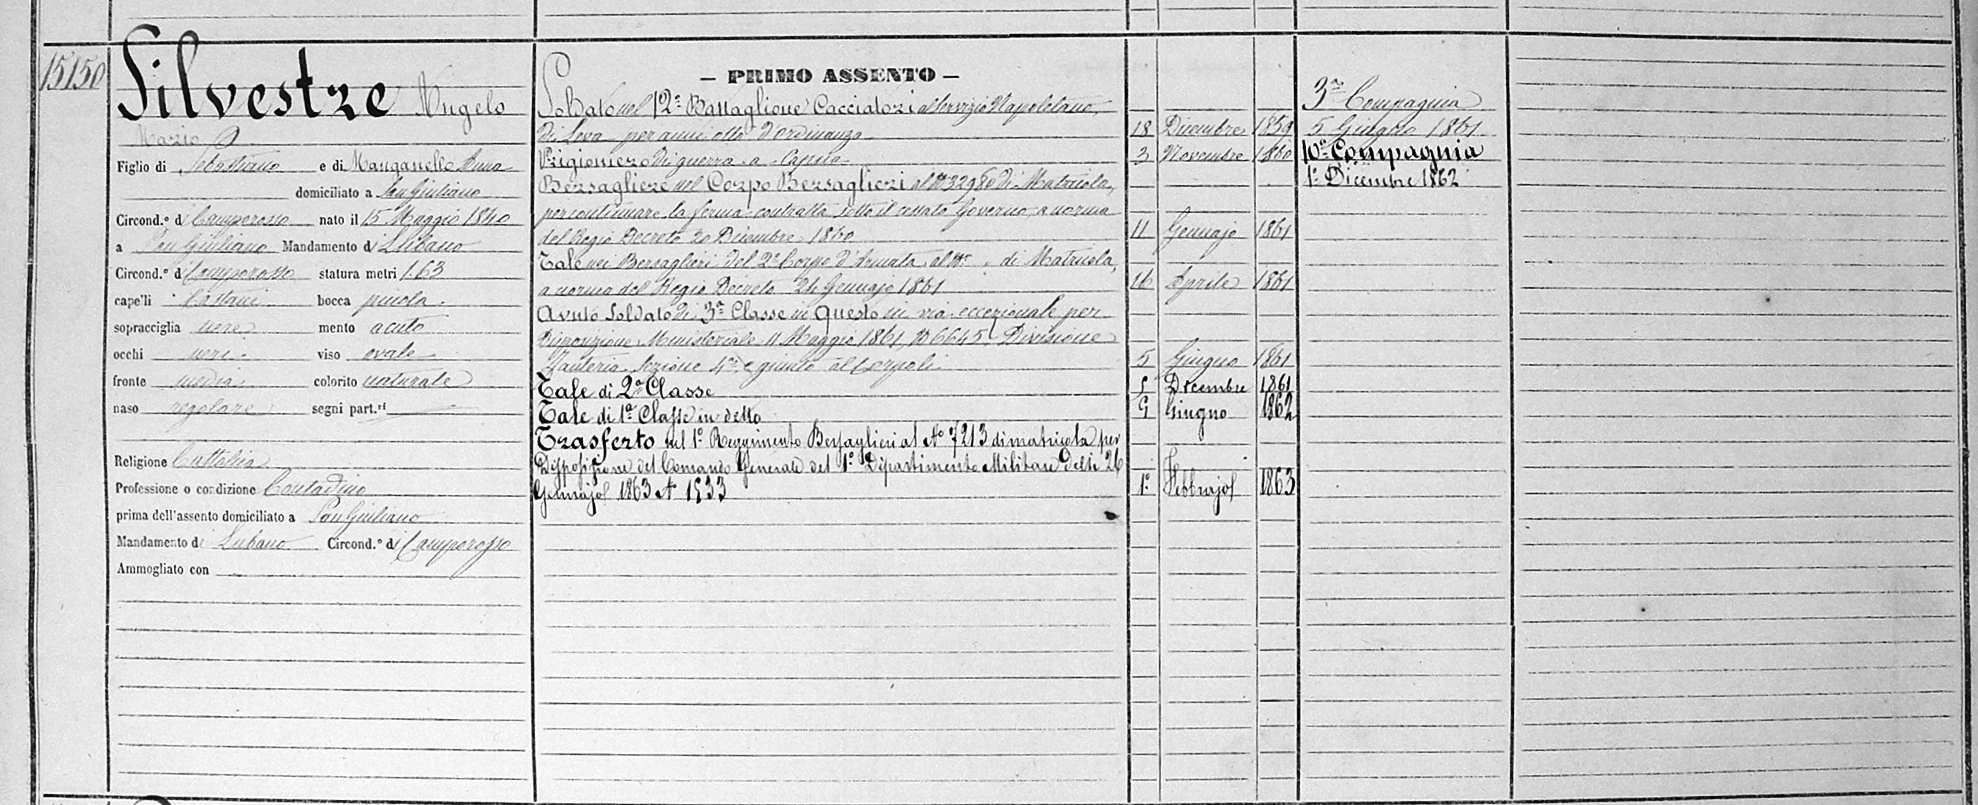 15150
Silvestre Angelo
Mario
Figlio di Sebastiano e di Manganello Anna
domiciliato a San Giuliano
Circond.º di Camporosso nato il 15 Maggio 1840
a San Giuliano Mandamento di
Circond.º di Camporosso statura metri 1.63
capelli Castani bocca piccola
sopracciglia nere mento acuto
occhi neri viso ovale
fronte media colorito naturale
naso regolare segni part.ri
Religione Cattolica
Professione o condizione Contadino
prima dell'assento domiciliato a San Giuliano
Mandamento di Circond.º di Camporosso
Ammogliato con
— PRIMO ASSENTO —
Soldato nel 12º Battaglione Cacciatori al Servizio Napoletano
di Leva per anni otto d'ordinanza 18 Dicembre 1859
Prigioniero di guerra a Capua 3 Novembre 1860
Bersagliere nel Corpo Bersaglieri al Nº 32980 di Matricola,
per continuare la ferma contratta sotto il cessato Governo a norma
del Regio Decreto 20 Dicembre 1860 11 Gennajo 1861
Tale nei Bersaglieri del 2º Corpo d'Armata al Nº di Matricola,
a norma del Regio Decreto 24 Gennajo 1861 16 Aprile 1861
Avuto Soldato di 3ª Classe in questo in via eccezionale per
Disposizione Ministeriale 11 Maggio 1861 Nº 6645 Divisione
Fanteria Sezione 4ª e giunto al Corpo li 5 Giugno 1861
Tale di 2ª Classe 1 Dicembre 1861
Tale di 1ª Classe in detto G Giugno 1862
Trasferto nel 1º Reggimento Bersaglieri al Nº 7213 di matricola per
Disposizione del Comando Generale del 1º Dipartimento Militare delli 26
Gennajo 1863 Nº 1533 1º Febbrajo 1863
3ª Compagnia
5 Giugno 1861
10ª Compagnia
1º Dicembre 1862